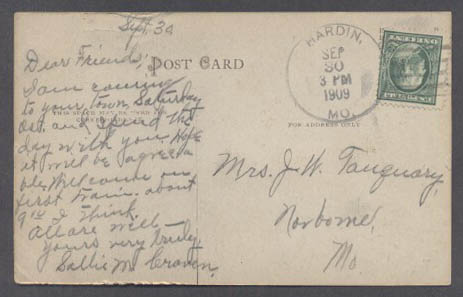 Sept. 30
Dear Friends,
I am coming
to your town Saturday
Oct. and spend the
day with you. Hope
it will be agreea
ble. Will come on
first train. about
9th I think.
All are well
yours very truly,
Sallie M. Craven.
POST CARD
THIS SPACE MAY BE USED FOR
FOR ADDRESS ONLY
HARDIN,
SEP
30
3 PM
1909
MO.
Mrs. J. W. Tanquary,
Norborne,
Mo.